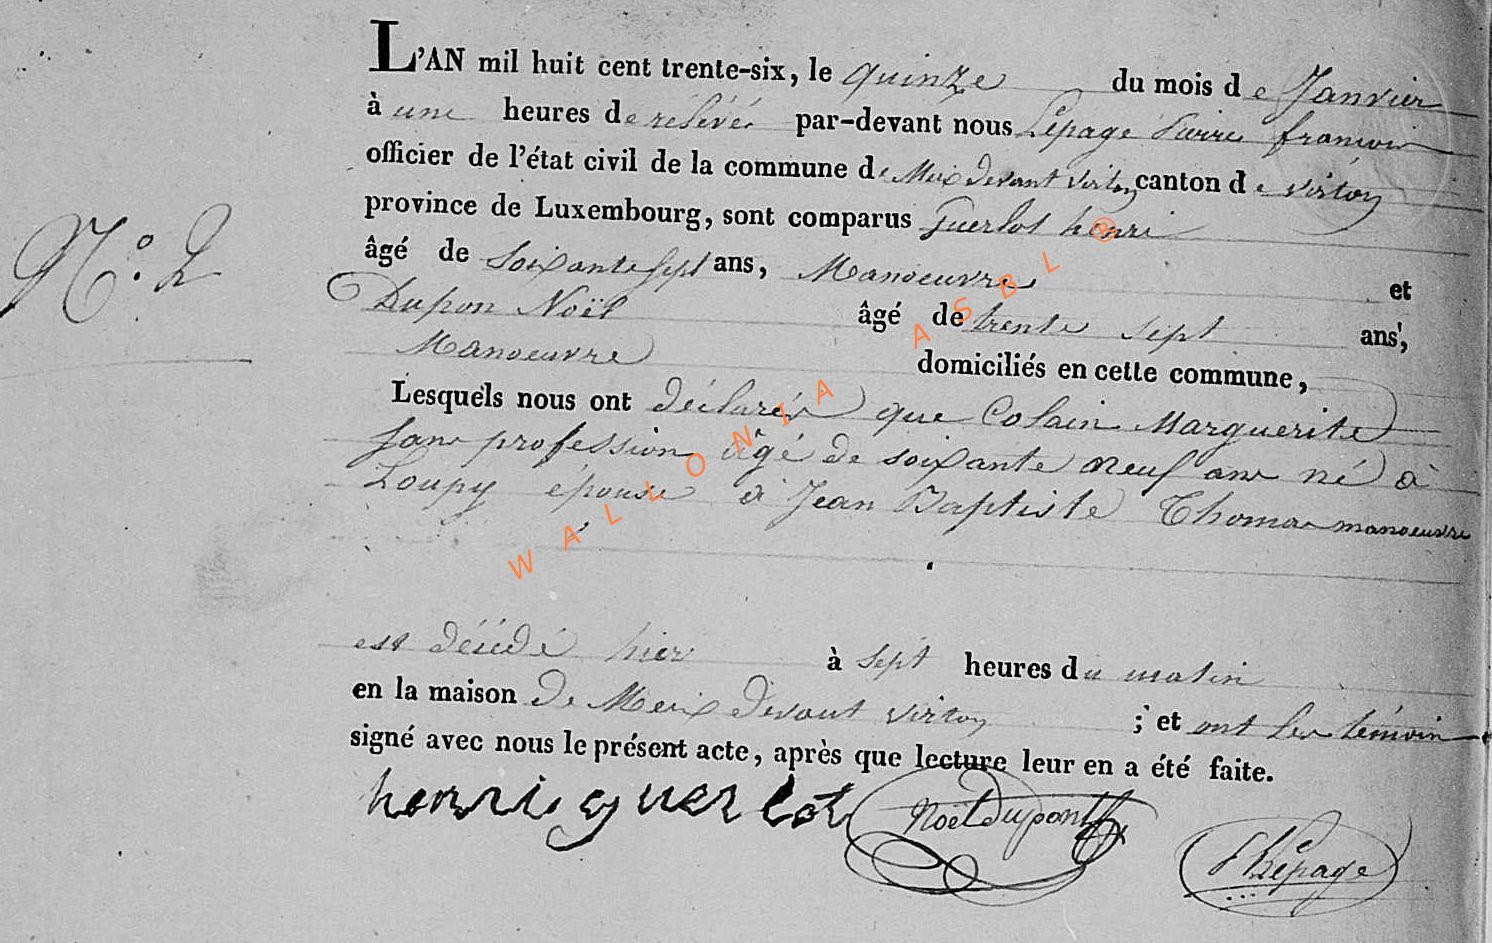 L'AN mil huit cent trente-six, le quinze du mois de Janvier
à une heures de rélévée par-devant nous Lépage Pierre françois
officier de l'état civil de la commune de Meix devant virton canton de virton
province de Luxembourg, sont comparus Guerlot henri
N.º 2
âgé de soixante sept ans, Manoeuvre et
Dupon Noël âgé de trente sept ans,
Manoeuvre domiciliés en cette commune,
Lesquels nous ont déclarés que Colain Marguerite
sans profession âgé de soixante neuf ans né à
Loupy épouse à Jean Baptiste Thomas manoeuvre
est décédé hier à sept heures du matin
en la maison de Meix devant virton ; et ont les témoin
signé avec nous le présent acte, après que lecture leur en a été faite.
henri guerlot Noël dupont Lépage
WALLONIA ASBL ®